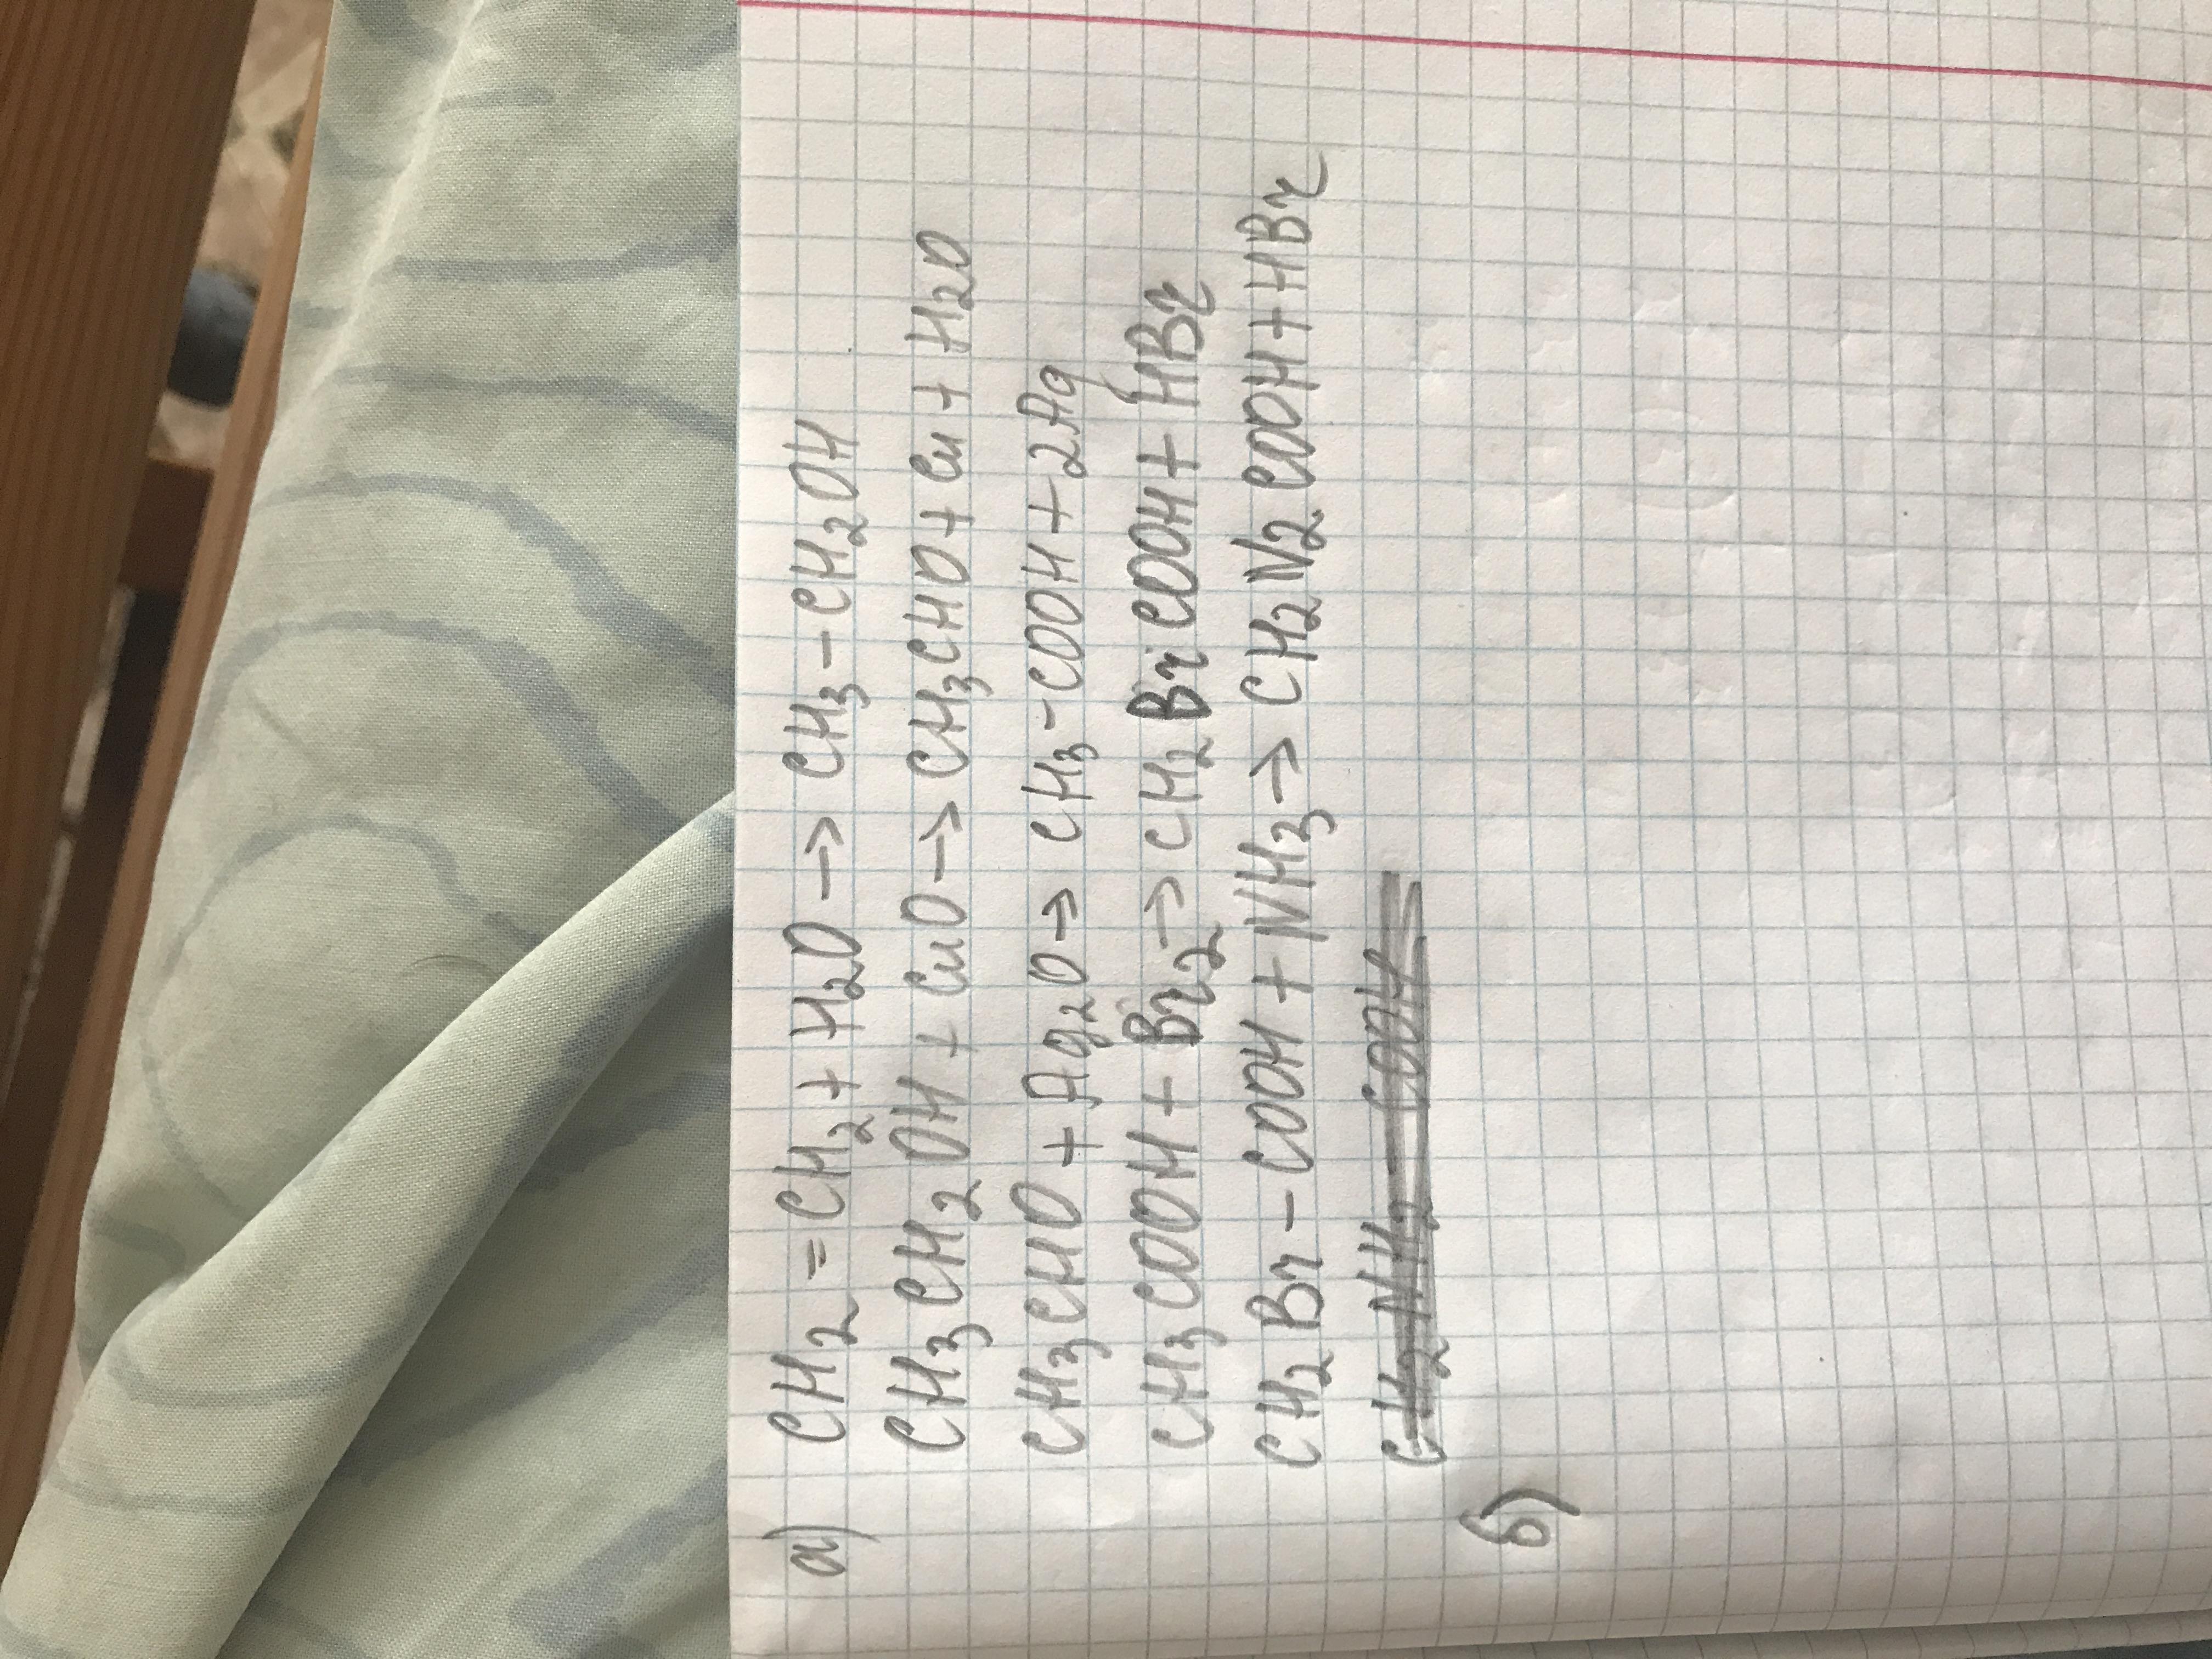 а) CH2=CH2+H2O→CH3-CH2OH
CH3CH2OH+CuO→CH3CHO+Cu+H2O
CH3CHO+Ag2O→CH3-COOH+2Ag
CH3COOH+Br2→CH2BrCOOH+HBr
CH2Br-COOH+NH3→CH2N2COOH+HBr
CH2NH2-COOH
б)